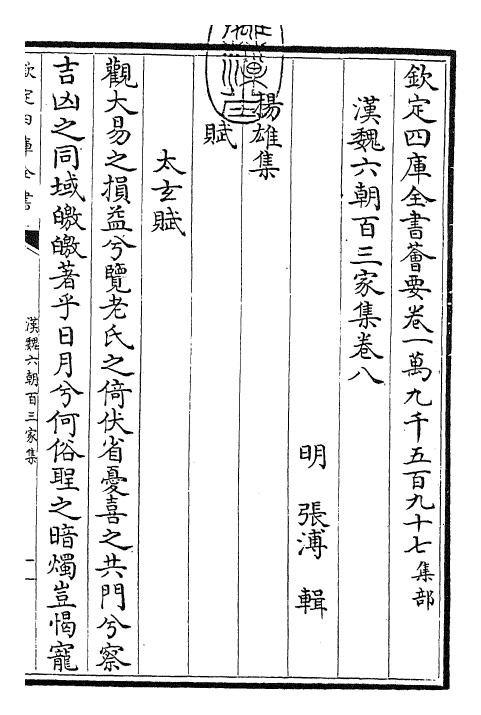 欽定四庫全書薈要卷一萬九千五百九十七集部
漢魏六朝百三家集卷八
明 張溥 輯
揚雄集
賦
太玄賦
觀大易之損益兮覽老氏之倚伏省憂喜之共門兮察
吉凶之同域皦皦著乎日月兮何俗聖之暗燭豈愒寵
欽定四庫全書
漢魏六朝百三家集